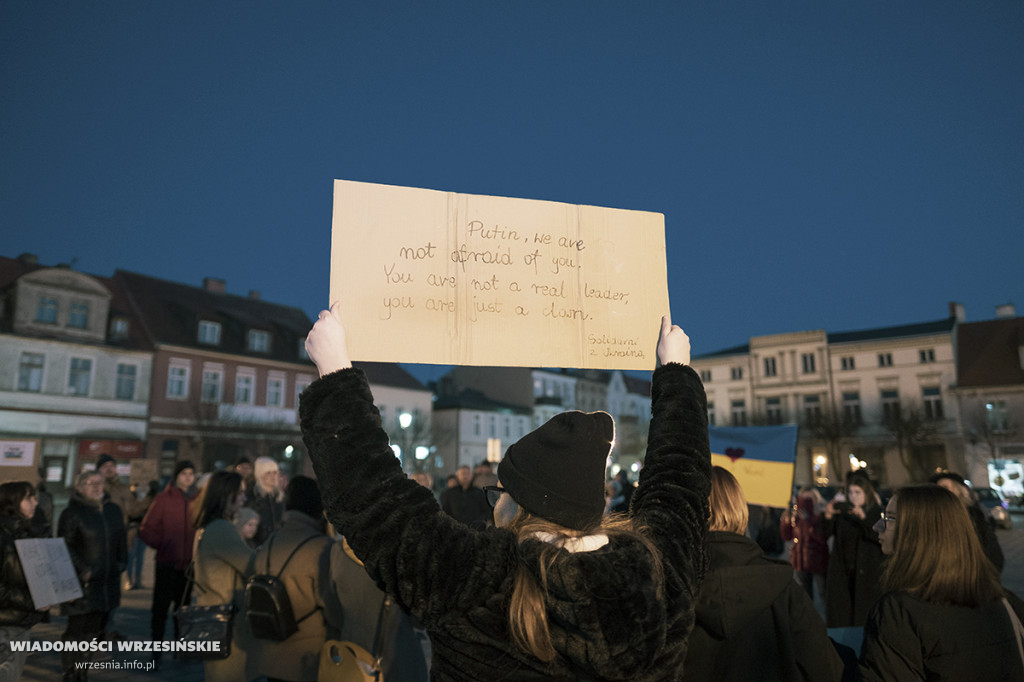 Putin, we are
not afraid of you.
You are not a real leader,
you are just a clown.
Solidarni
z Ukrainą
WIADOMOŚCI WRZESIŃSKIE
wrzesnia.info.pl